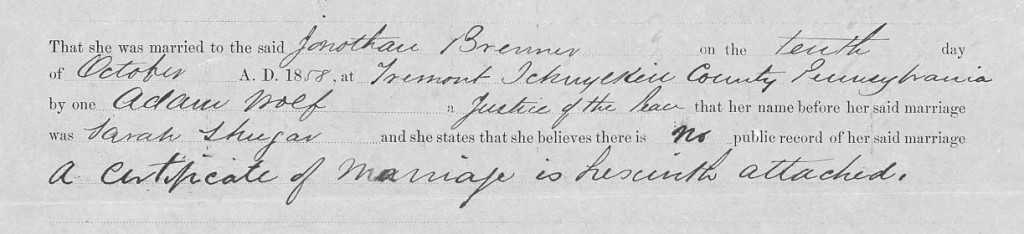 That she was married to the said Jonothan Brenner on the tenth day
of October A. D. 1858, at Tremont Schuylkill County Pennsylvania
by one Adam Wolf a Justice of the Peace that her name before her said marriage
was Sarah Shugar and she states that she believes there is no public record of her said marriage
A Certificate of Marriage is herewith attached.